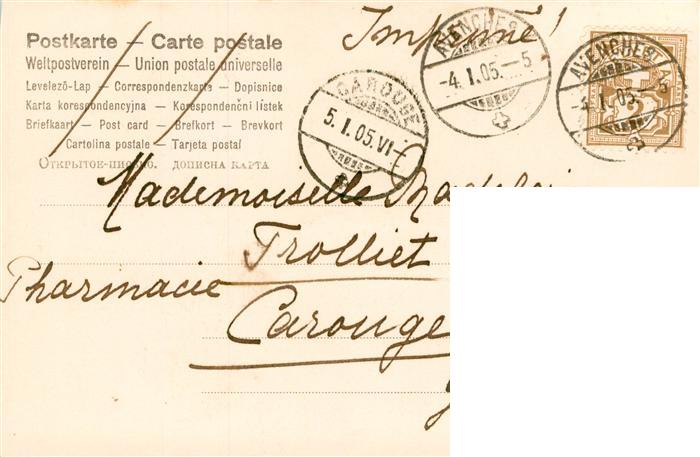 Imprimé!
Postkarte — Carte postale
Weltpostverein — Union postale universelle
Levelező-Lap — Correspondenzkarte — Dopisnice
Karta korespondencyjna — Korespondenční lístek
Briefkaart — Post card — Brefkort — Brevkort
Cartolina postale — Tarjeta postal
Открытое письмо. дописна карта
AVENCHES
-4.I.05.-5
AVENCHES
-4.I.05.-5
CAROUGE
5.I.05.VI-
Mademoiselle
Trolliet
Pharmacie
Carouge